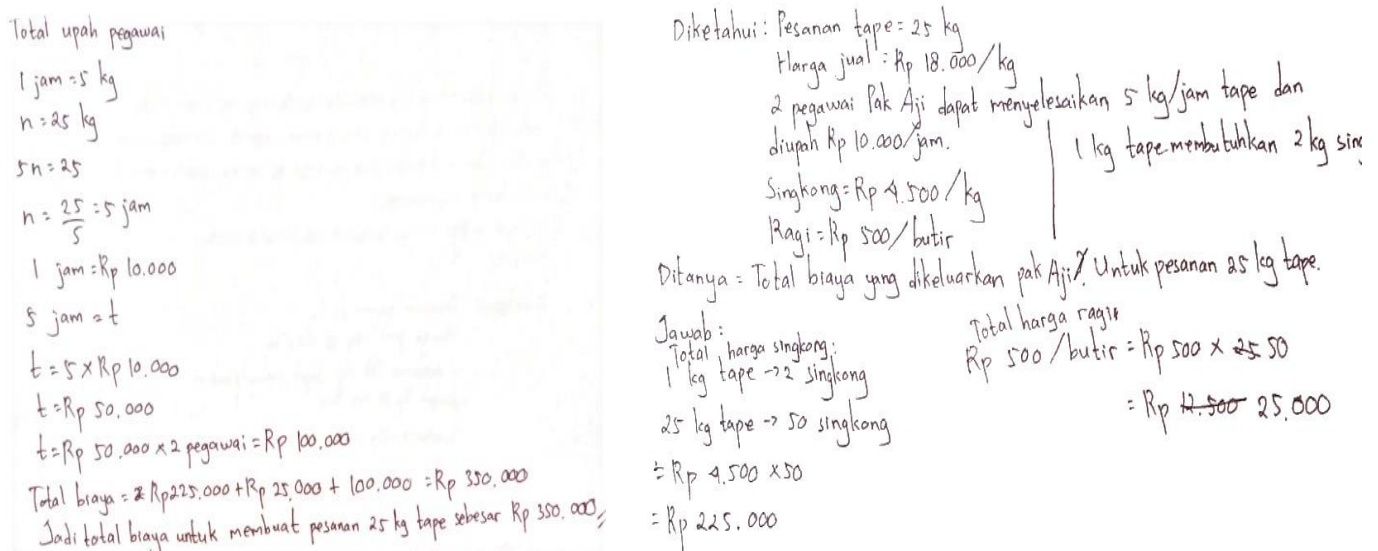 Total upah pegawai
1 jam = 5 kg
n = 25 kg
5n = 25
n = 25/5 = 5 jam
1 jam = Rp 10.000
5 jam = t
t = 5 x Rp 10.000
t = Rp 50.000
t = Rp 50.000 x 2 pegawai = Rp 100.000
Total biaya = Rp225.000 + Rp 25.000 + 100.000 = Rp 350.000
Jadi total biaya untuk membuat pesanan 25 kg tape sebesar Rp 350.000,
Diketahui : Pesanan tape = 25 kg
Harga jual : Rp 18.000/kg
2 pegawai Pak Aji dapat menyelesaikan 5 kg/jam tape dan
diupah Rp 10.000/jam.
1 kg tape membutuhkan 2 kg sin
Singkong = Rp 4.500/kg
Ragi = Rp 500/butir
Ditanya = Total biaya yang dikeluarkan pak Aji? Untuk pesanan 25 kg tape.
Jawab :
Total harga singkong :
1 kg tape -> 2 singkong
25 kg tape -> 50 singkong
= Rp 4.500 x 50
= Rp 225.000
Total harga ragi
Rp 500/butir = Rp 500 x 25 50
= Rp 12.500 25.000